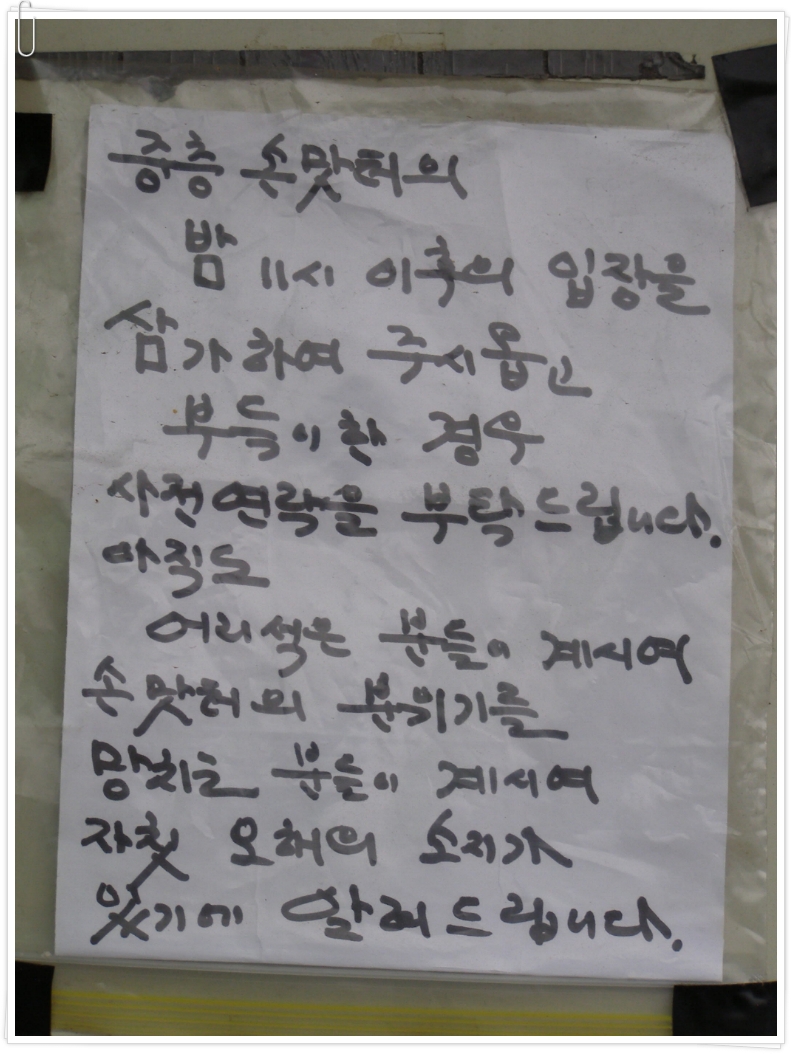 중층 손맛터의
밤 11시 이후의 입장을
삼가하여 주시옵고
부득이한 경우
사전연락을 부탁드립니다.
아직도
어리석은 분들이 계시여
손맛터의 분위기를
망치는 분들이 계시여
자칫 오해의 소지가
있기에 알려드립니다.